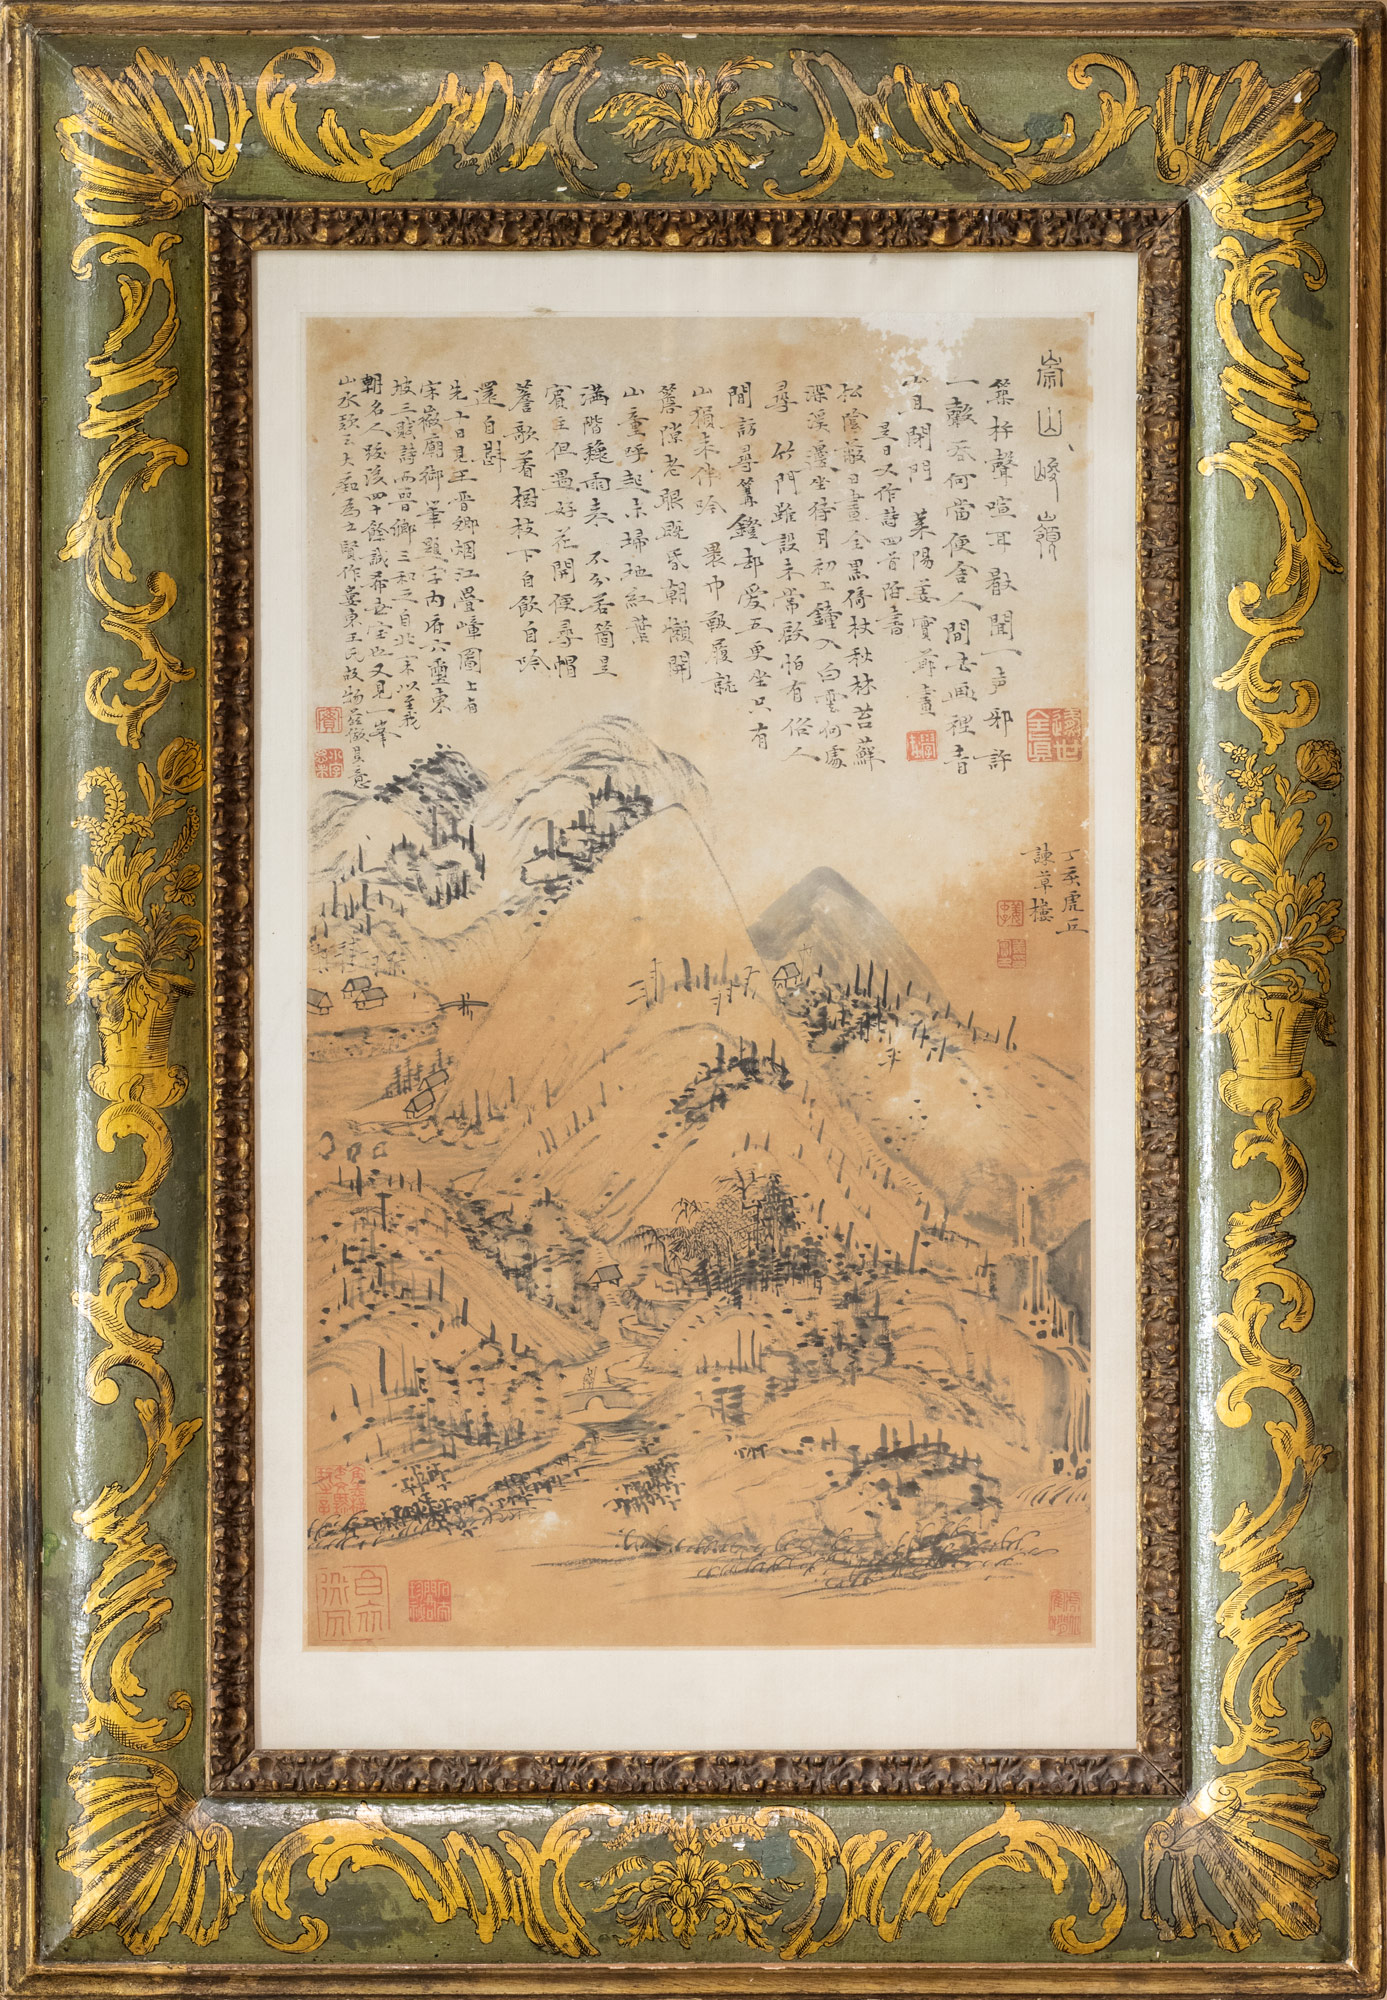 崇山峻嶺
築杵聲喧耳厭聞一声邪許
一歎吞何當便舍人間去画裡青
山且閉門 萊陽姜實節畫
是日又作詩四首陏書
松陰蔽日畫全黑倚杖秋林苔蘚
深溪邊坐待月初上鐘入白雲何處
尋 竹門雖設未常啟怕有俗人
間訪尋篝鐙却愛五更坐只有
山猿来伴吟 裹巾報履就
簷隙老眼既昏朝懶開
山童呼起未掃地紅葉
满階穐雨来 不分若箇是
賓主但遇好花開便尋帽
簷歌着樹枝下自飲自吟
還自斟
先十日見王晋卿烟江疊嶂圖上有
宋徽廟御筆題字内府六璽東
坡三賤詩西晋卿三和之自北宋以至我
朝名人跋後四十餘誠希世宝也又見一峯
山水題云大癡為立賢作婁東王氏故物茲倣其意
丁亥虎丘
諫草樓